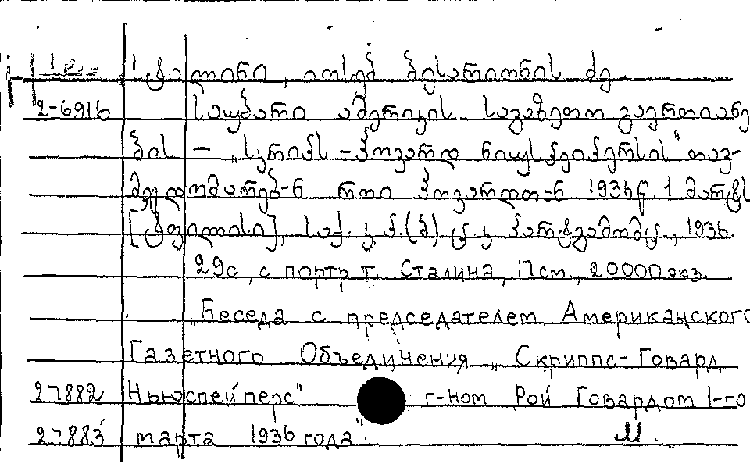 სტალინი, იოსებ ბესარიონის ძე
2-6916 საუბარი ამერიკის საგაზეთო გაერთიანე
ბის – „სკრიპს-ჰოვარდ ნიუსპეიპერსის" თავ-
მჯდომარებ-ნ როი ჰოვარდთან 1936 წ. 1 მარტს
[ტფილისი], საქ. კ. პ.(ბ) ც. კ. პარტგამომც., 1936.
29с, с портр. т. Сталина, 17см., 20000 экз.
„Беседа с председателем Американского
Газетного Объединения „Скриппс-Говард
27882 Ньюспейперс" г-ном Рой Говардом 1-го
27883 марта 1936 года".